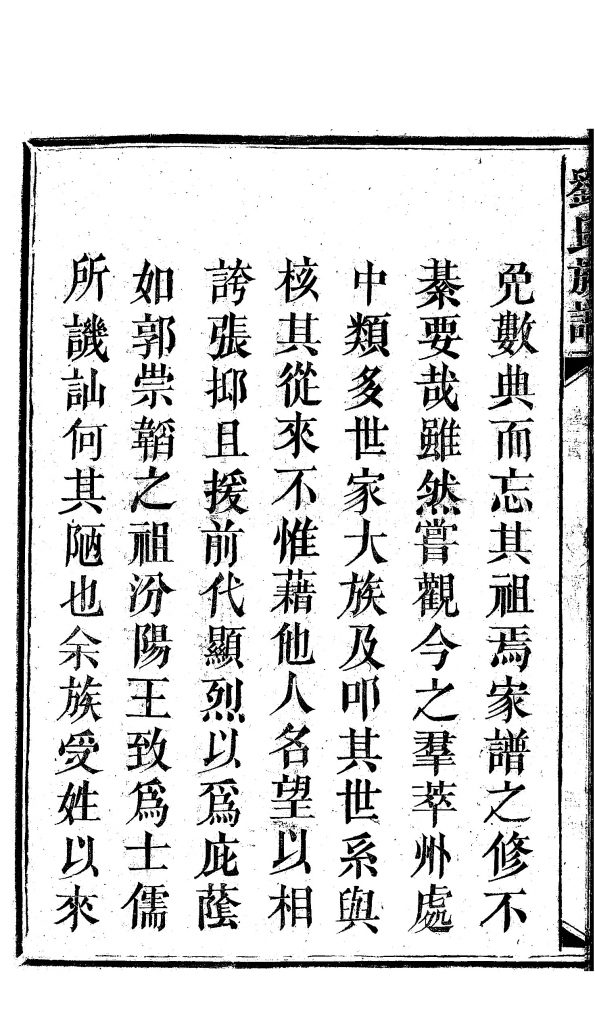 劉氏族譜
免數典而忘其祖焉家譜之修不
綦要哉雖然嘗觀今之羣萃州處
中類多世家大族及叩其世系與
核其從來不惟藉他人名望以相
誇張抑且援前代顯烈以爲庇蔭
如郭崇韜之祖汾陽王致爲士儒
所譏訕何其陋也余族受姓以來